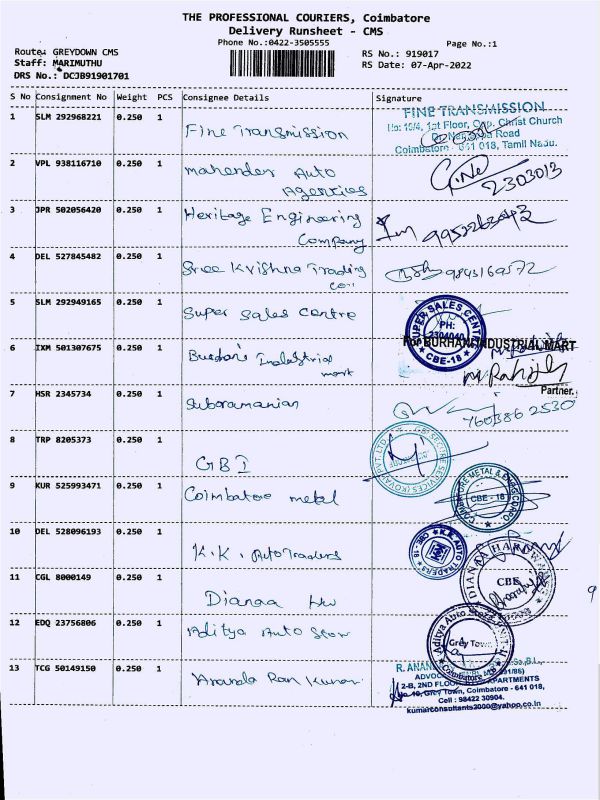 THE PROFESSIONAL COURIERS, Coimbatore
Delivery Runsheet - CMS
Phone No.:0422-3505555
Page No.:1
Route: GREYDOWN CMS
Staff: MARIMUTHU
DRS No.: DCJB91901701
RS No.: 919017
RS Date: 07-Apr-2022
S No Consignment No Weight PCS Consignee Details Signature
1 SLM 292968221 0.250 1 Fine Transmission
FINE TRANSMISSION
1st Floor, Opp. Christ Church
Road
Coimbatore - 641 018, Tamil Nadu.
2 VPL 938116710 0.250 1 mahender Auto
Agencies
2303013
3 JPR 502056420 0.250 1 Heritage Engineering
Company
4 DEL 527845482 0.250 1 Sree Krishna Trading
Co
9843169572
5 SLM 292949165 0.250 1 Super Sales Centre
SUPER SALES CENTRE
PH:
2304040
CBE-18
6 IXM 501307675 0.250 1 Burhani Industrial
mart
For BURHANI INDUSTRIAL MART
Partner.
7 HSR 2345734 0.250 1 Subramanian
760386 2530
8 TRP 8205373 0.250 1 GBI
9 KUR 525993471 0.250 1 Coimbatore metal
CBE - 18
10 DEL 528096193 0.250 1 K.K. Auto Traders
K.K. AUTO TRADERS
CBE - 18
11 CGL 8000149 0.250 1 Dianaa Hw
DIANAA HARDWARE
CBE
9
12 EDQ 23756806 0.250 1 Aditya Auto Store
Aditya Auto
Grey Town
Coimbatore
13 TCG 50149150 0.250 1 Ananda Ram Kumar
R. ANAND
2-B, 2ND FLOOR APARTMENTS
Grey Town, Coimbatore - 641 018,
Cell : 98422 30904.
kumarconsultants2000@yahoo.co.in